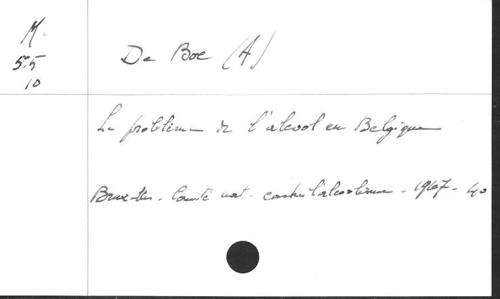 M.
55
10
De Boe (A)
Le problème de l'alcool en Belgique
Bruxelles - Comité nat. contre l'alcoolisme - 1947 - 40